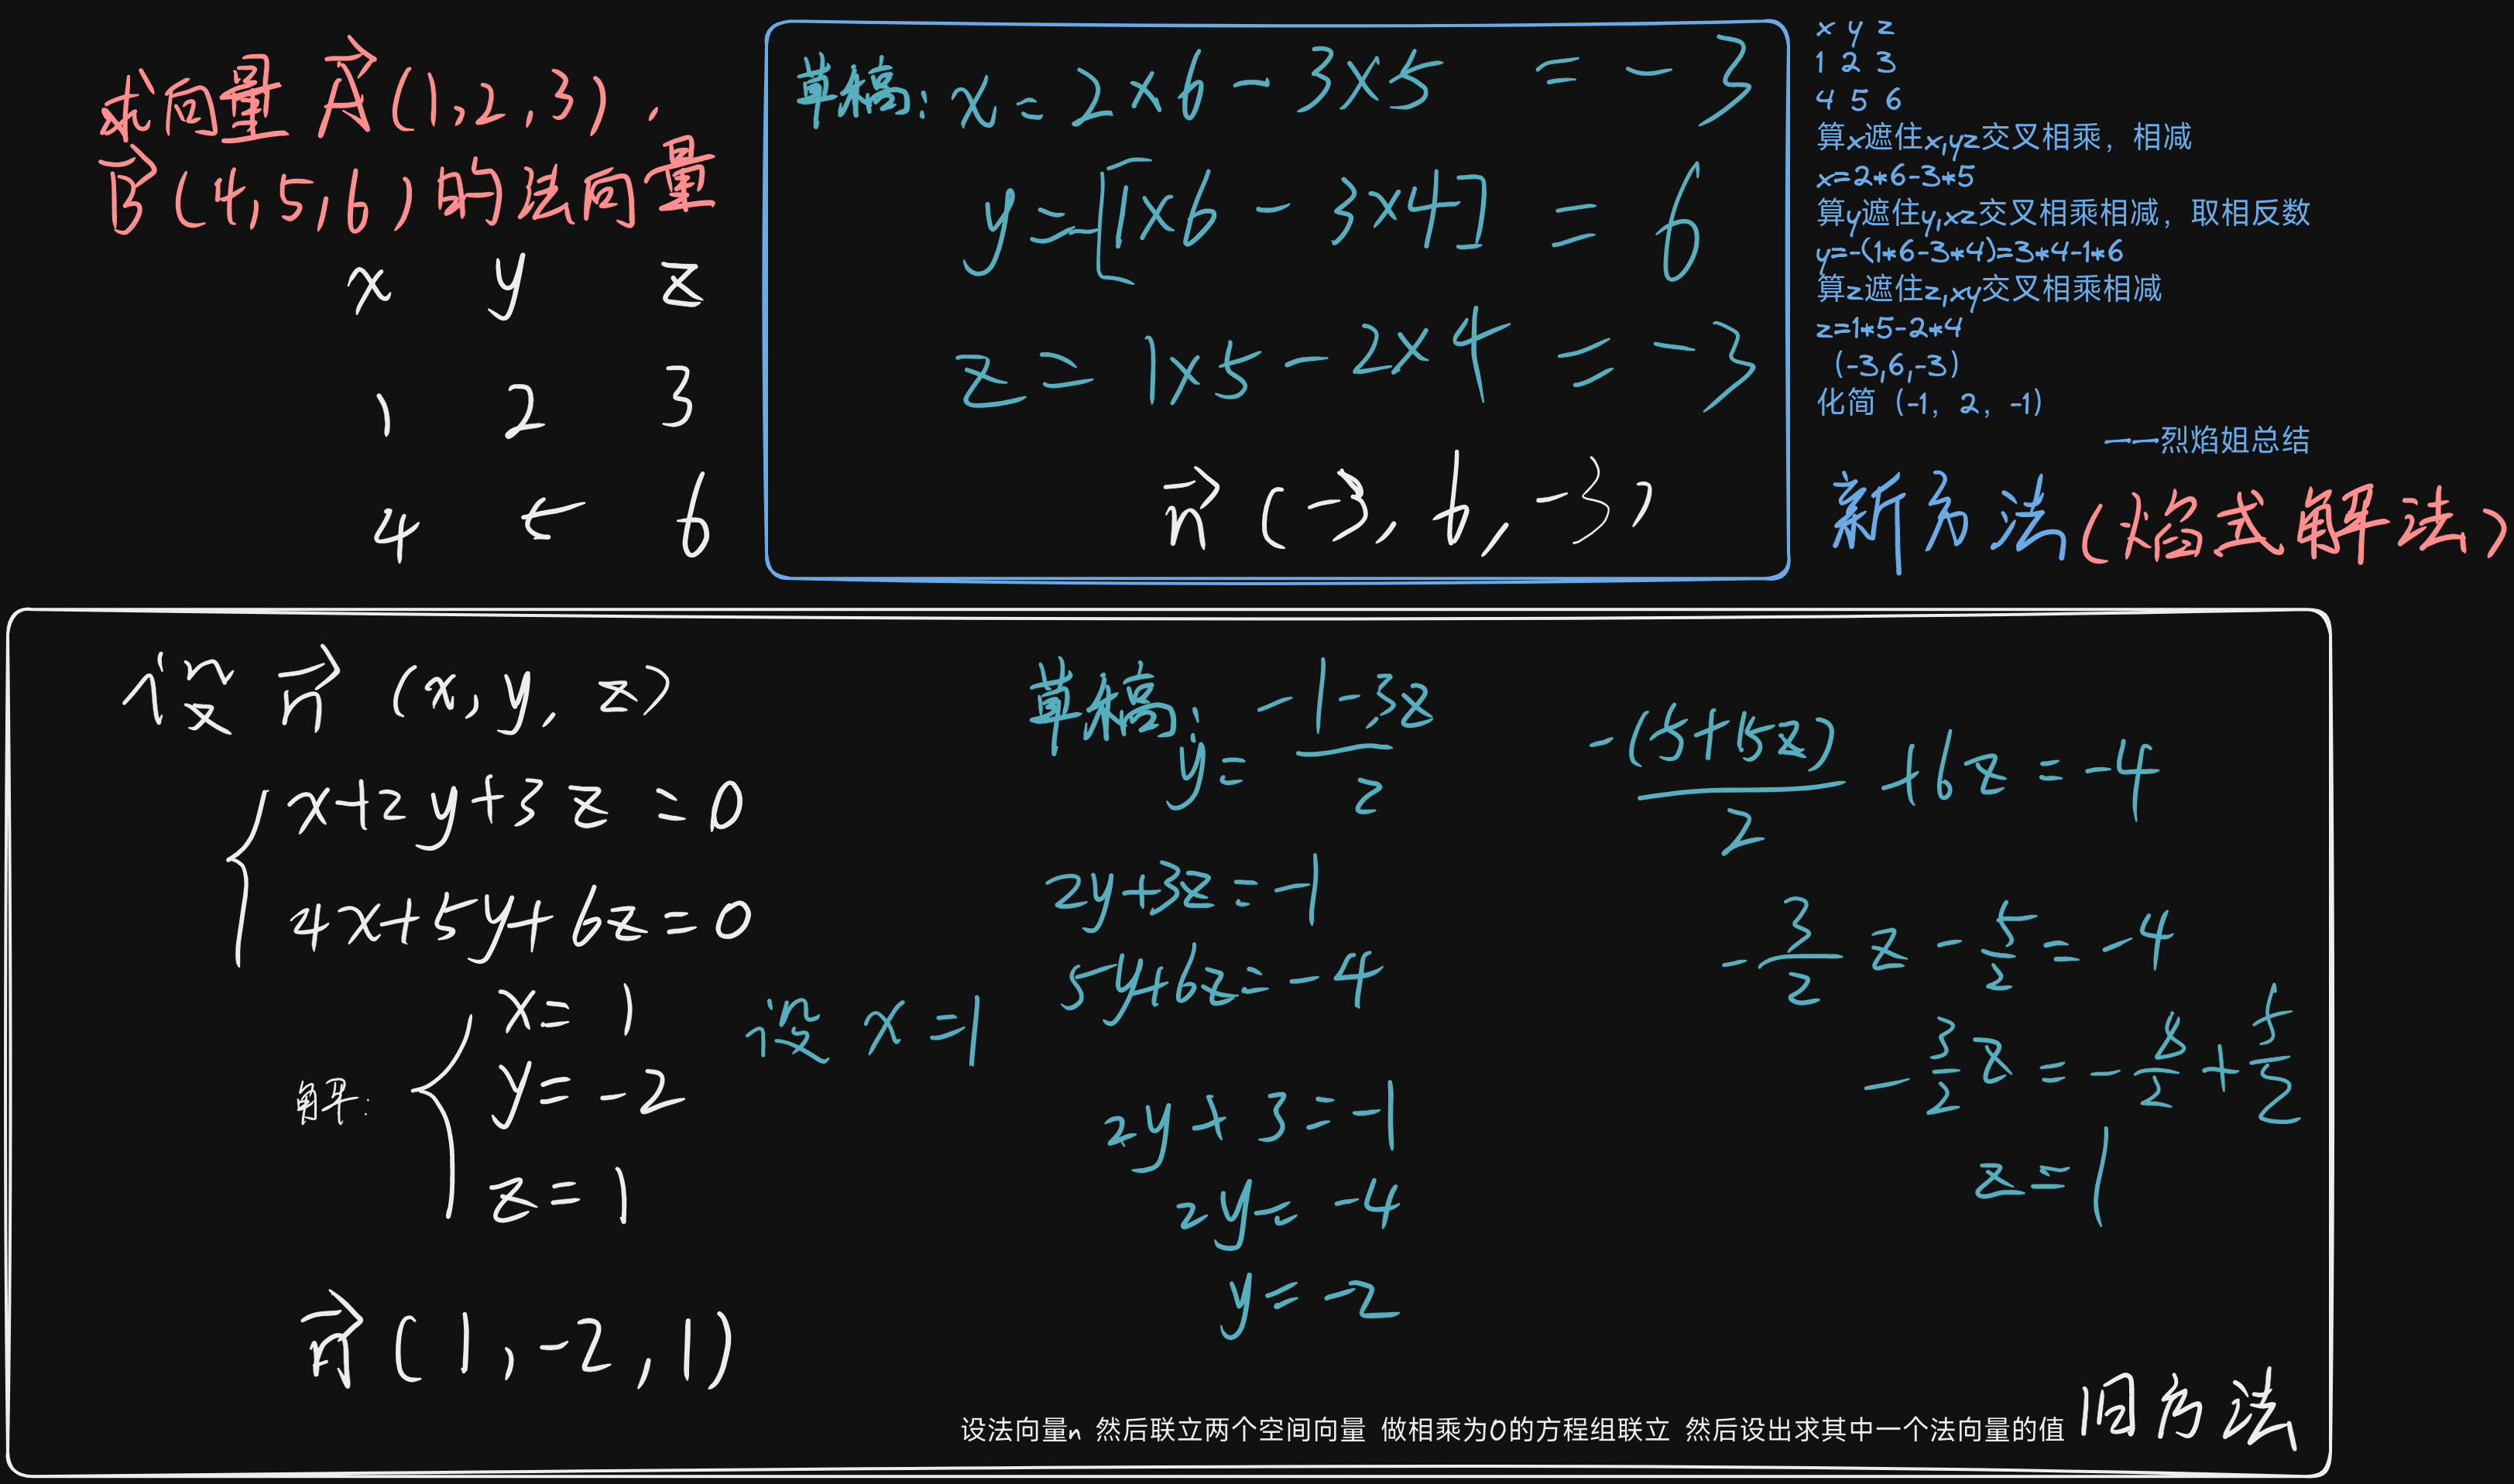 求向量 A⃗(1,2,3).
B⃗(4,5,6)的法向量
x y z
1 2 3
4 5 6
草稿: x=2×6-3×5 =-3
y=-[1×6-3×4]=6
z=1×5-2×4=-3
n⃗(-3,6,-3)
x y z
1 2 3
4 5 6
算x遮住x,yz交叉相乘，相减
x=2*6-3*5
算y遮住y,xz交叉相乘相减，取相反数
y=-(1*6-3*4)=3*4-1*6
算z遮住z,xy交叉相乘相减
z=1*5-2*4
(-3,6,-3)
化简（-1，2，-1）
——烈焰姐总结
新方法(焰式解法)
设 n⃗ (x,y,z)
x+2y+3z=0
4x+5y+6z=0
解:
x=1
y=-2
z=1
设 x=1
n⃗(1,-2,1)
草稿:
y=(-1-3z)/2
2y+3z=-1
5y+6z=-4
2y+3=-1
2y=-4
y=-2
-(5+15z)/2+6z=-4
-3/2z-5/2=-4
-3/2z=-8/2+5/2
z=1
设法向量n 然后联立两个空间向量 做相乘为0的方程组联立 然后设出求其中一个法向量的值
旧方法